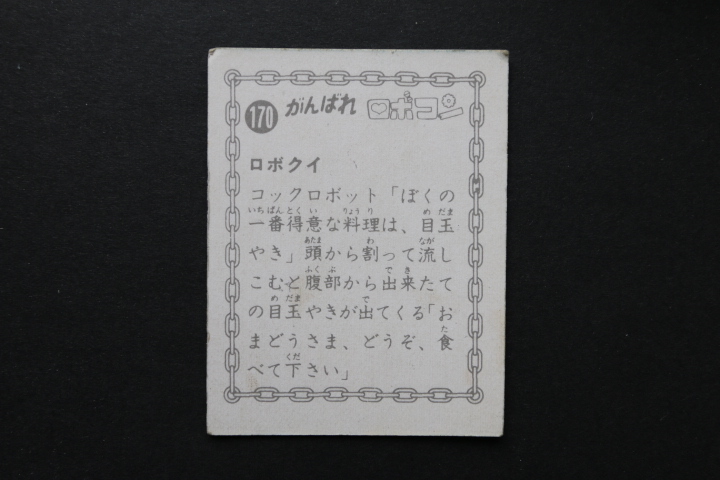 170 がんばれ ロボコン
ロボクイ
コックロボット「ぼくの
一番得意な料理は、目玉
やき」頭から割って流し
こむと腹部から出来たて
の目玉やきが出てくる「お
まどうさま、どうぞ、食
べて下さい」